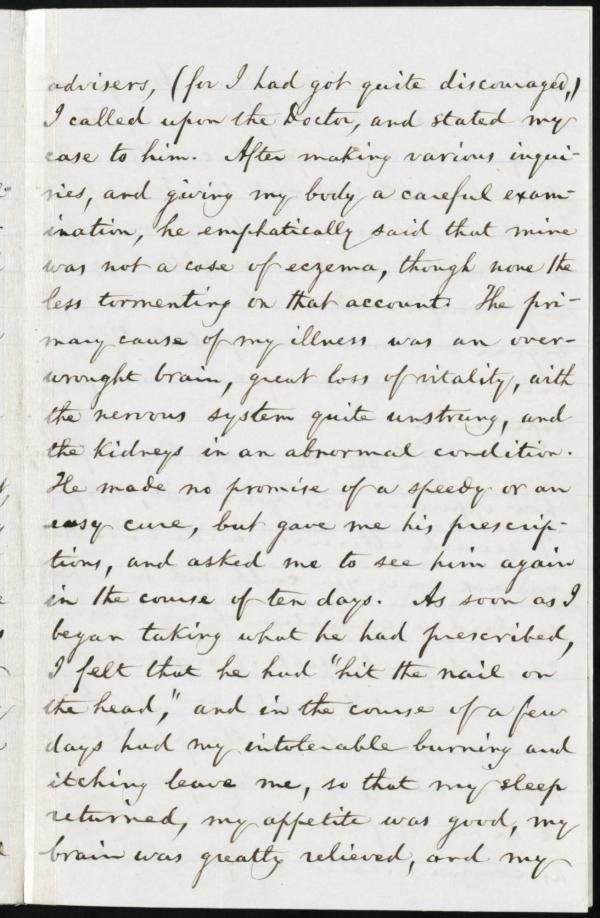 advisers, (for I had got quite discouraged,)
I called upon the Doctor, and stated my
case to him. After making various inqui-
ries, and giving my body a careful exam-
ination, he emphatically said that mine
was not a case of eczema, though none the
less tormenting on that account. The pri-
mary cause of my illness was an over-
wrought brain, great loss of vitality, with
the nervous system quite unstrung, and
the kidneys in an abnormal condition.
He made no promise of a speedy or an
easy cure, but gave me his prescrip-
tions, and asked me to see him again
in the course of ten days. As soon as I
began taking what he had prescribed,
I felt that he had "hit the nail on
the head," and in the course of a few
days had my intolerable burning and
itching leave me, so that my sleep
returned, my appetite was good, my
brain was greatly relieved, and my